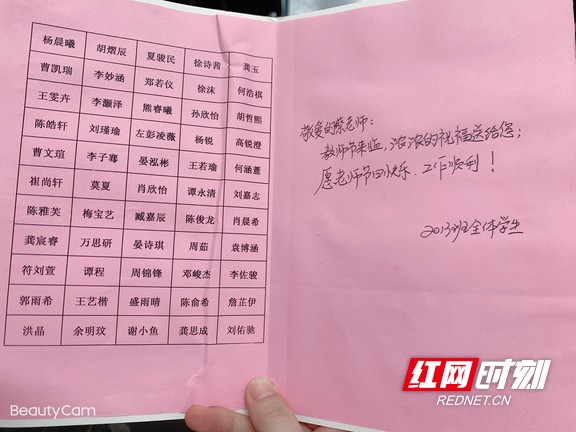 杨晨曦 胡熠辰 夏骏民 徐诗茜 龚玉
曹凯瑞 李妙涵 郑若仪 徐沫 何浩祺
王雯卉 李灏泽 熊睿曦 孙欣怡 胡哲熙
陈皓轩 刘瑾瑜 左彭凌薇 杨锐 高锐澄
曹文瑄 李子骞 晏泓彬 王若瑜 何涵萱
崔尚轩 莫夏 肖欣怡 谭永清 刘嘉志
陈雅芙 梅宝艺 臧嘉辰 陈俊龙 肖晨希
龚宸睿 万思研 晏诗琪 周茹 袁博涵
符刘萱 谭程 周锦锋 邓峻杰 李佐骏
郭雨希 王艺楷 盛雨晴 陈俞希 詹芷伊
洪晶 余明玟 谢小鱼 龚思成 刘佑驰
敬爱的蔡老师：
教师节来临，浓浓的祝福送给您；
愿老师节日快乐、工作顺利！
2013班全体学生
红网时刻
REDNET.CN
BeautyCam